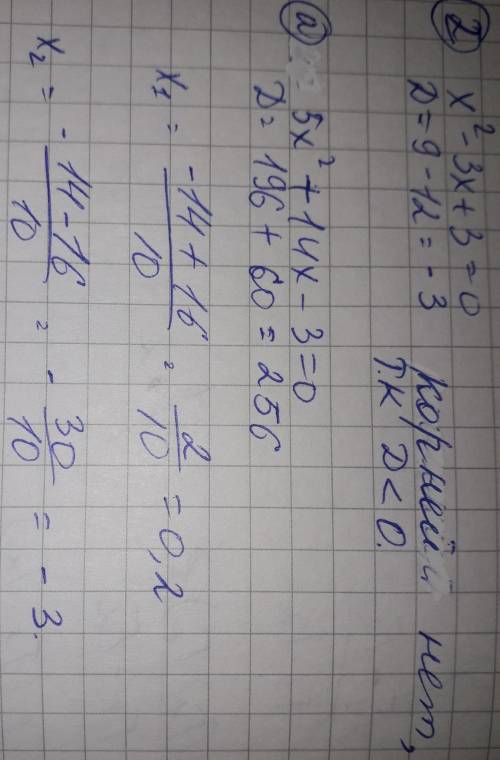 2) x² - 3x + 3 = 0
D = 9 - 12 = - 3 корней нет,
т.к D < 0.
а) 5x² + 14x - 3 = 0
D = 196 + 60 = 256
x₁ = (-14 + 16)/10 = 2/10 = 0,2
x₂ = (-14 - 16)/10 = - 30/10 = - 3.